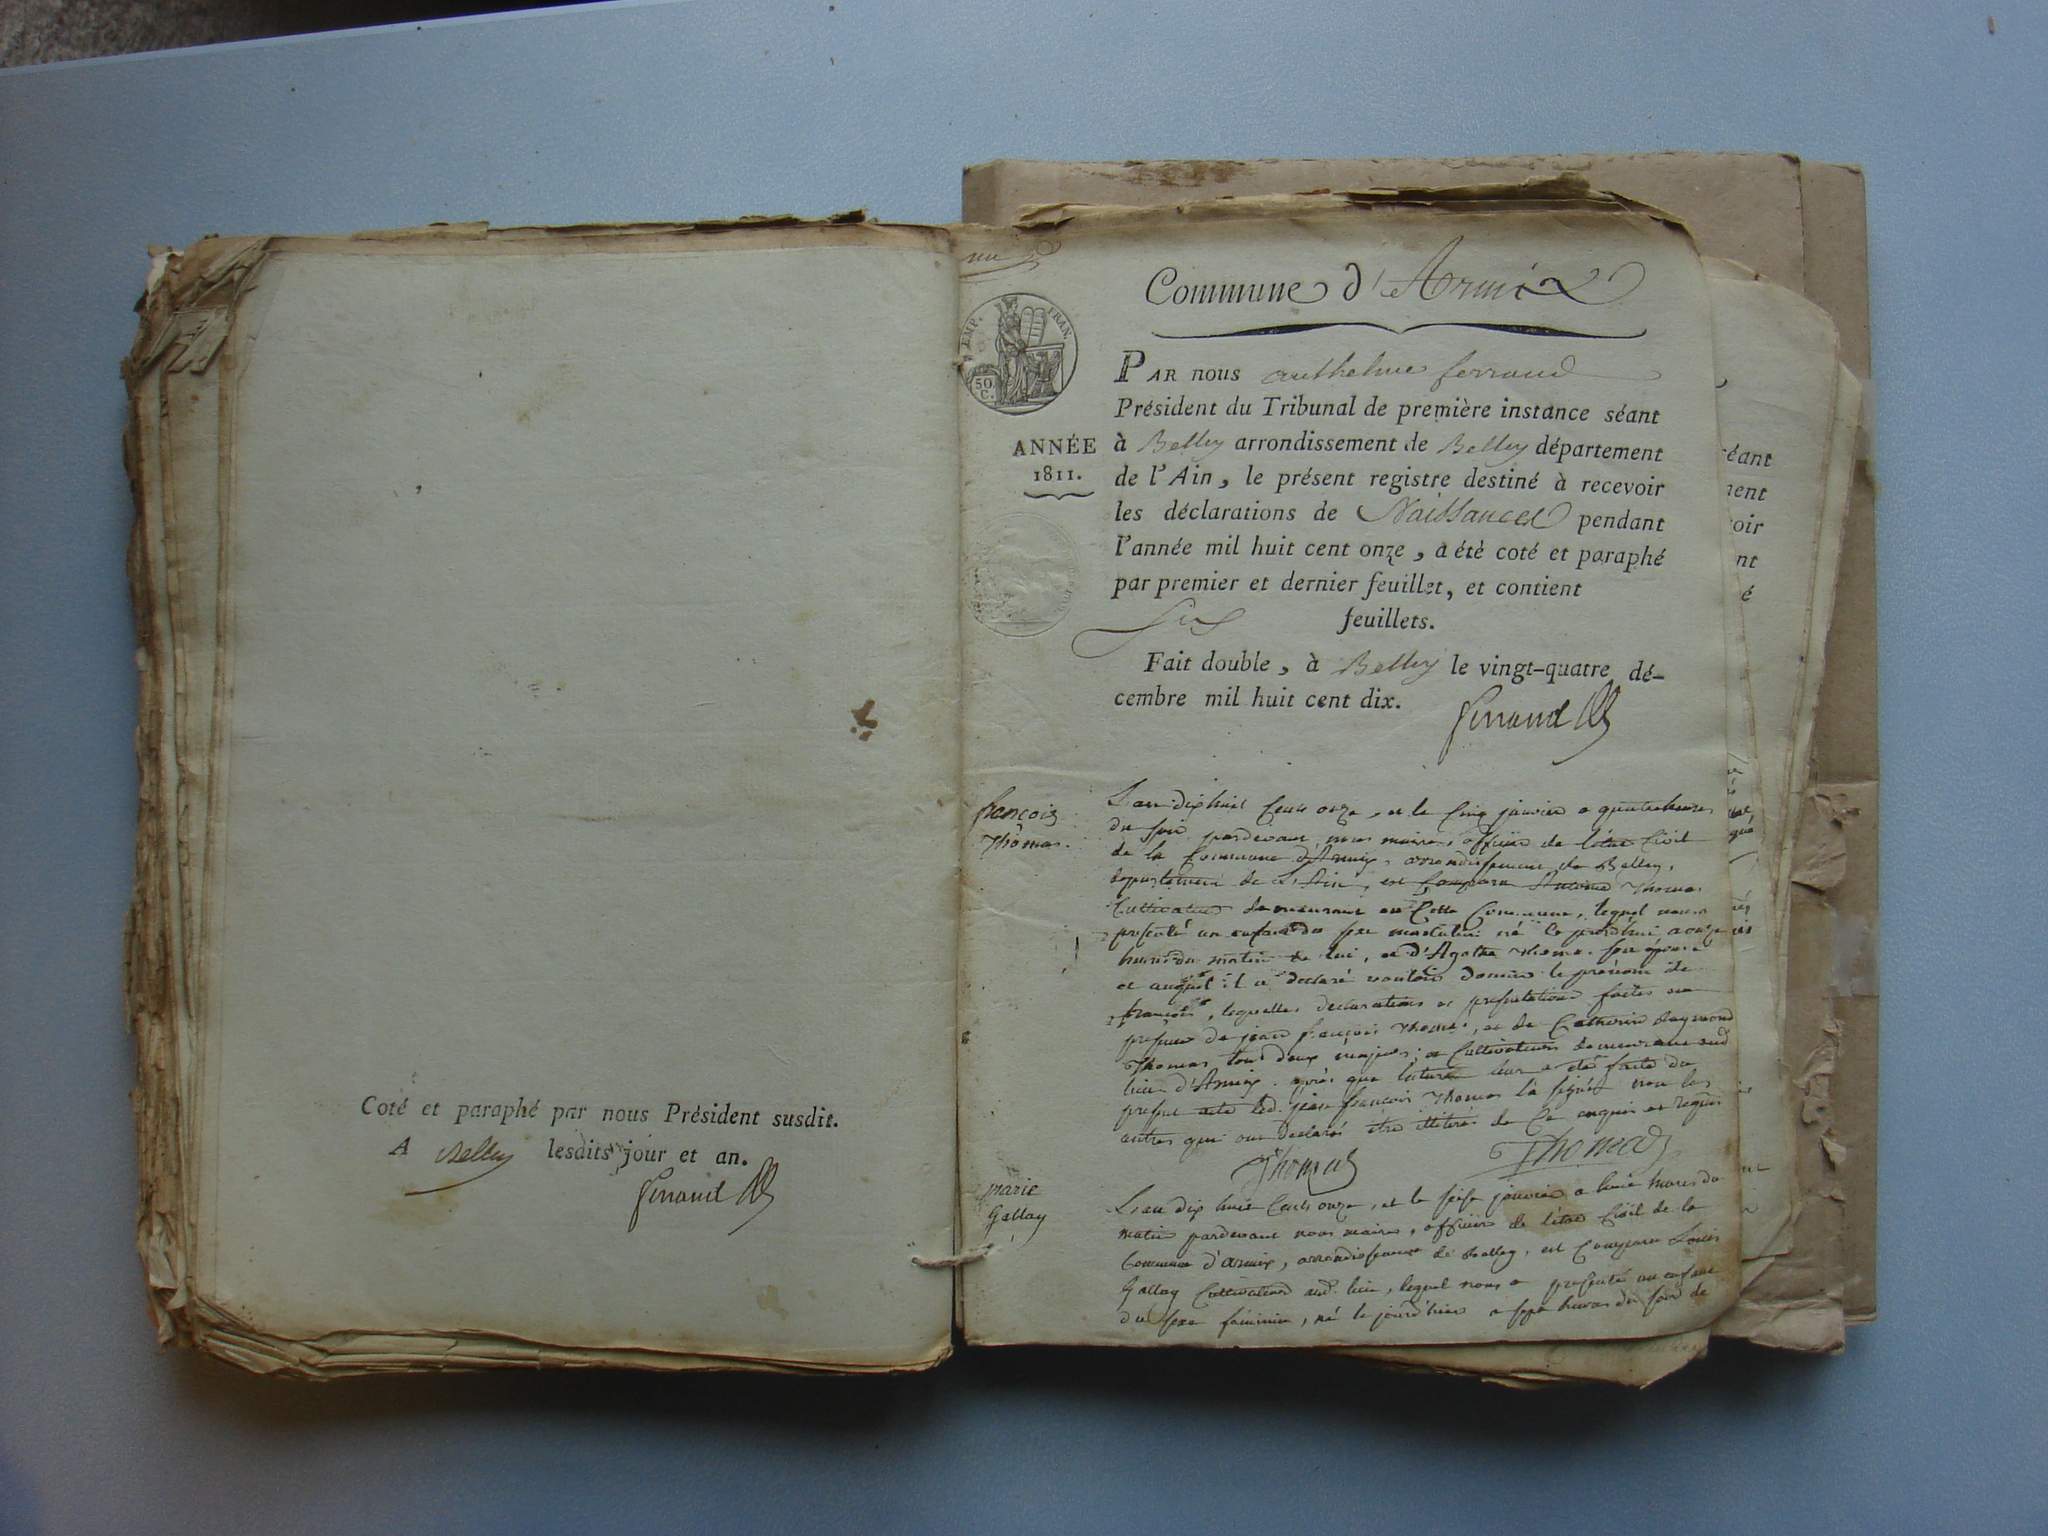 Coté et paraphé par nous Président susdit.
A Belley lesdits jour et an.
ferrand
Commune d'Armix
EMP. FRAN.
50 C.
ANNÉE
1811.
PAR nous anthelme ferrand
Président du Tribunal de première instance séant
à Belley arrondissement de Belley département
de l'Ain, le présent registre destiné à recevoir
les déclarations de Naissances pendant
l'année mil huit cent onze, a été coté et paraphé
par premier et dernier feuillet, et contient
six feuillets.
Fait double, à Belley le vingt-quatre dé-
cembre mil huit cent dix.
ferrand
françois
Thomas.
L'an dix huit Cents onze, et le Cinq janvier a quatre heures
du soir pardevant nous maire, officier de l'état Civil
de la Commune d'Armix, arrondissement de Belley,
departement de L'Ain, est Comparu Antoine Thomas
Cultivateur demeurant en Cette Commune, lequel nous a
presenté un enfant du sexe masculin né Ce jourd'hui a onze
heures du matin de lui, et d'Agathe Thomas son épouse
et auquel il a declaré vouloir donner le prénom de
françois, lesquelles declarations et presentations faites en
presence de jean françois Thomas, et de Catherin Raymond
Thomas tous deux majeurs, et Cultivateurs demeurant aud
lieu d'Armix. après que lecture leur a été faite du
present acte led. jean françois Thomas l'a signé, non les
autres qui ont declaré être illitérés de Ce enquis et requis
Thomas Thomas
marie
Gallay
L'an dix huit Cents onze, et le seise janvier a huit heures du
matin pardevant nous maire, officier de l'état Civil de la
Commune d'Armix, arrondissement de Belley, est Comparu Louis
Gallay Cultivateur aud. lieu, lequel nous a presenté un enfant
du sexe féminin, né le jourd'hier a sept heures du soir de
éant
ment
oir
nt
é